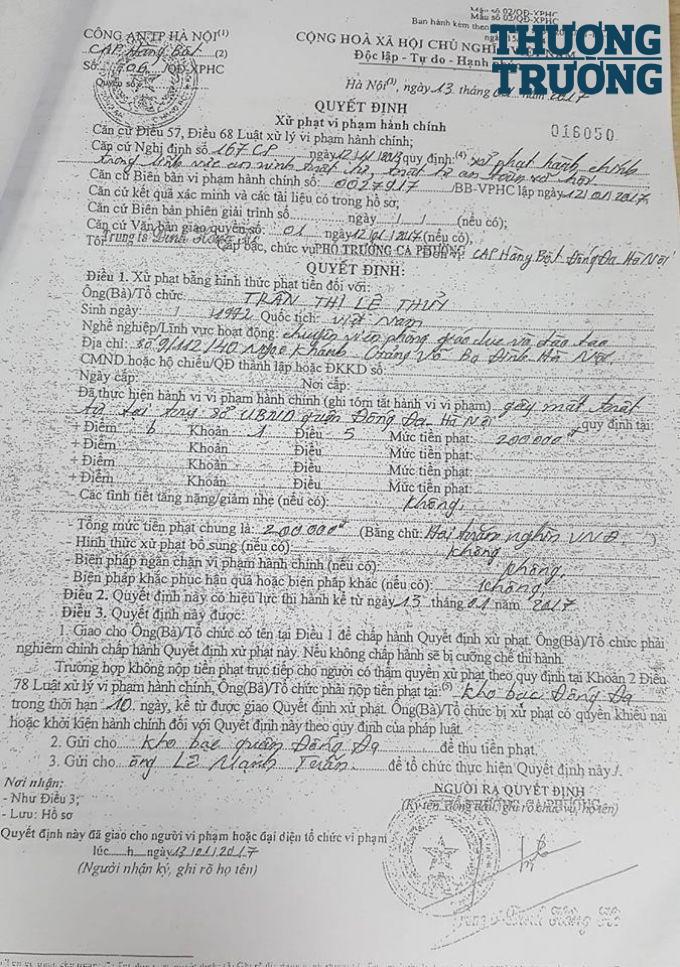 Mẫu số 02/QĐ-XPHC
Mẫu số 02/QĐ-XPHC
Ban hành kèm theo
THƯƠNG
TRƯỜNG
CÔNG AN TP HÀ NỘI(1)
CAP Hàng Bột (2)
Số: 06 /QĐ-XPHC
Quyển số:
CỘNG HOÀ XÃ HỘI CHỦ NGHĨA VIỆT NAM
Độc lập - Tự do - Hạnh phúc
Hà Nội(3), ngày 13 tháng 01 năm 2017
QUYẾT ĐỊNH
Xử phạt vi phạm hành chính
016050
Căn cứ Điều 57, Điều 68 Luật xử lý vi phạm hành chính;
Căn cứ Nghị định số 167 CP ngày 12/11/2013 quy định:(4) xử phạt hành chính
trong lĩnh vực an ninh trật tự, trật tự an toàn xã hội.
Căn cứ Biên bản vi phạm hành chính số: 0027917 /BB-VPHC lập ngày 12/01/2017
Căn cứ kết quả xác minh và các tài liệu có trong hồ sơ;
Căn cứ Biên bản phiên giải trình số ngày / / (nếu có);
Căn cứ Văn bản giao quyền số: 01 ngày 12/01/2017 (nếu có),
Tôi: Trung tá Đinh Hồng Cấp bậc, chức vụ PHÓ TRƯỞNG CA PHƯỜNG CAP Hàng Bột Đống Đa Hà Nội
QUYẾT ĐỊNH:
Điều 1. Xử phạt bằng hình thức phạt tiền đối với:
Ông(Bà)/Tổ chức: TRẦN THỊ LÊ THỦY
Sinh ngày: / /1972 Quốc tịch: Việt Nam
Nghề nghiệp/Lĩnh vực hoạt động: chuyên viên phòng giáo dục và đào tạo
Địa chỉ: Số 9/112/40 Ngọc Khánh - Giảng Võ Ba Đình Hà Nội
CMND hoặc hộ chiếu/QĐ thành lập hoặc ĐKKD số:
Ngày cấp: Nơi cấp:
Đã thực hiện hành vi vi phạm hành chính (ghi tóm tắt hành vi vi phạm) gây mất trật
tự tại trụ sở UBND quận Đống Đa - Hà Nội quy định tại:
+ Điểm b Khoản 1 Điều 5 Mức tiền phạt: 200000đ
+ Điểm Khoản Điều Mức tiền phạt:
+ Điểm Khoản Điều Mức tiền phạt:
+ Điểm Khoản Điều Mức tiền phạt:
- Các tình tiết tăng nặng/giảm nhẹ (nếu có): Không.
- Tổng mức tiền phạt chung là: 200000đ (Bằng chữ: Hai trăm nghìn VNĐ )
- Hình thức xử phạt bổ sung (nếu có): Không
- Biện pháp ngăn chặn vi phạm hành chính (nếu có): Không.
- Biện pháp khắc phục hậu quả hoặc biện pháp khác (nếu có): Không.
Điều 2. Quyết định này có hiệu lực thi hành kể từ ngày 13 tháng 01 năm 2017
Điều 3. Quyết định này được:
1. Giao cho Ông(Bà)/Tổ chức có tên tại Điều 1 để chấp hành Quyết định xử phạt. Ông(Bà)/Tổ chức phải
nghiêm chỉnh chấp hành Quyết định xử phạt này. Nếu không chấp hành sẽ bị cưỡng chế thi hành.
Trường hợp không nộp tiền phạt trực tiếp cho người có thẩm quyền xử phạt theo quy định tại Khoản 2 Điều
78 Luật xử lý vi phạm hành chính, Ông(Bà)/Tổ chức phải nộp tiền phạt tại:(5) Kho bạc Đống Đa
trong thời hạn 10 ngày, kể từ được giao Quyết định xử phạt. Ông(Bà)/Tổ chức bị xử phạt có quyền khiếu nại
hoặc khởi kiện hành chính đối với Quyết định này theo quy định của pháp luật.
2. Gửi cho Kho bạc quận Đống Đa để thu tiền phạt.
3. Gửi cho ông Lê Mạnh Tuấn để tổ chức thực hiện Quyết định này./.
Nơi nhận:
- Như Điều 3;
- Lưu: Hồ sơ
NGƯỜI RA QUYẾT ĐỊNH
(Ký tên, đóng dấu, ghi rõ chức vụ, họ tên)
Quyết định này đã giao cho người vi phạm hoặc đại diện tổ chức vi phạm
lúc h ngày 13/01/2017
(Người nhận ký, ghi rõ họ tên)